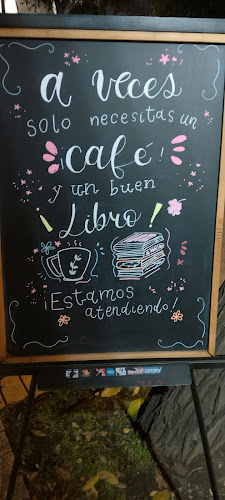 a veces
solo necesitas un
¡café!
y un buen
¡Libro!
¡Estamos
atendiendo!